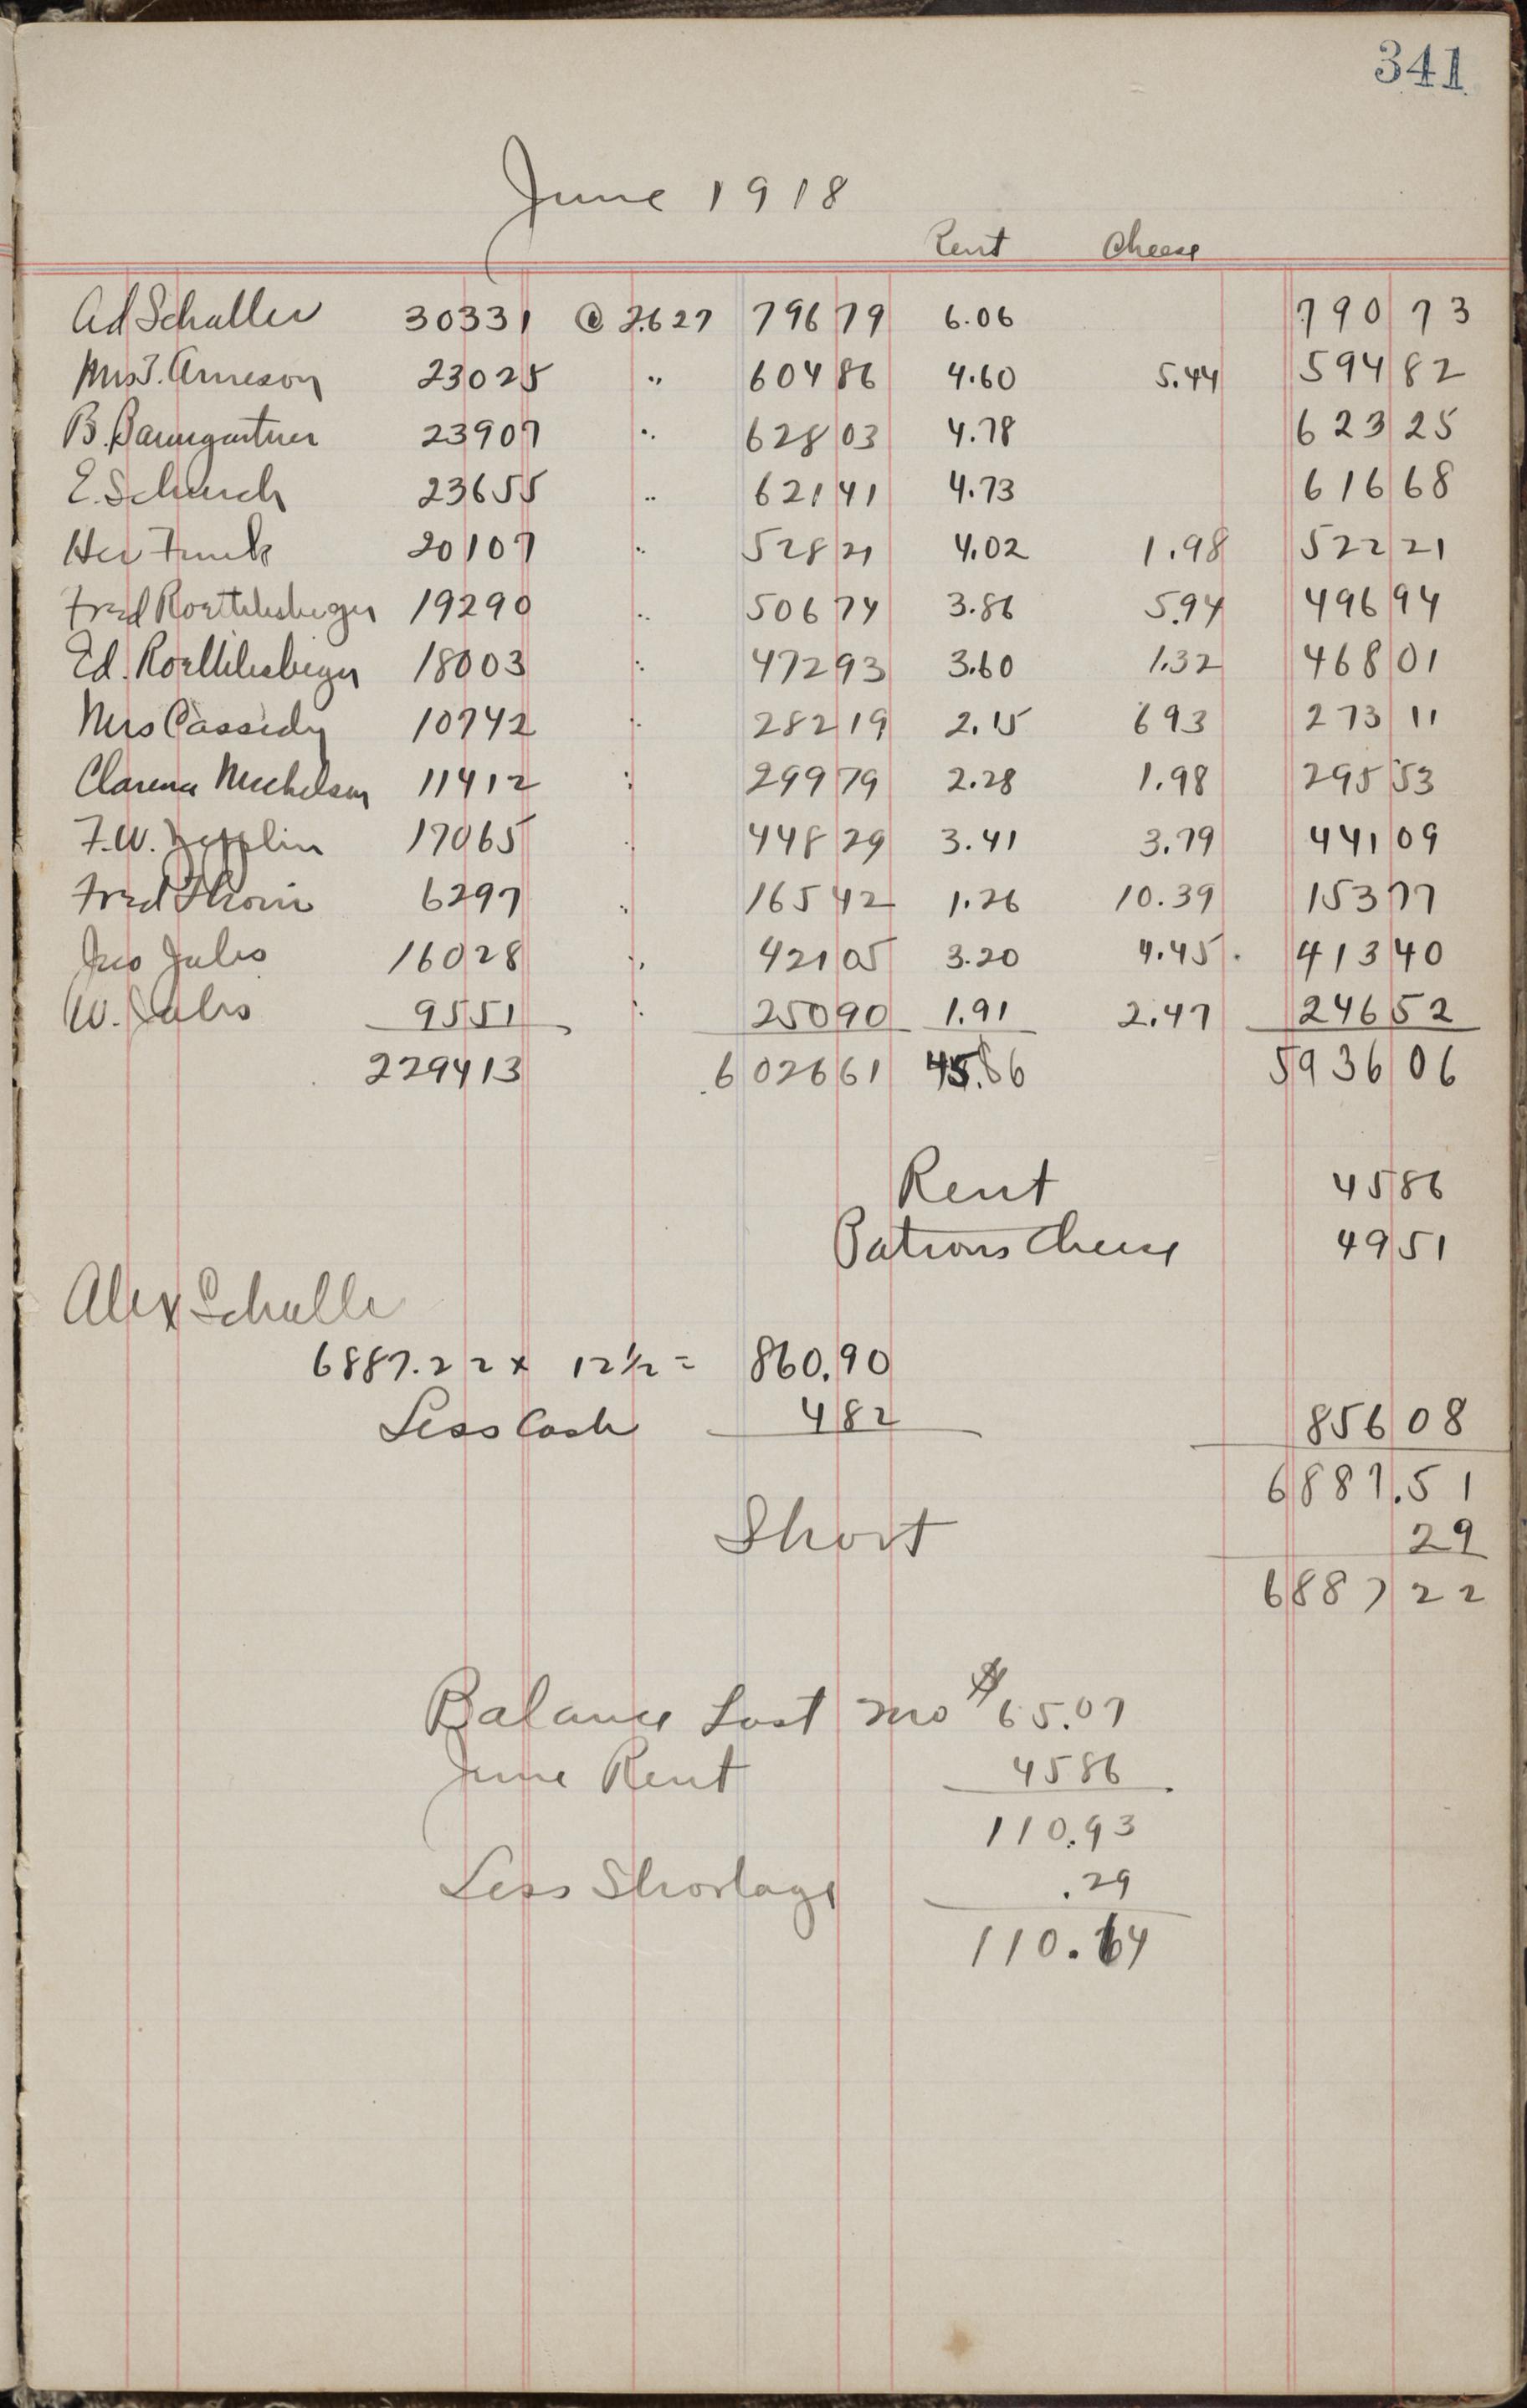 341
June 1918
Rent Cheese
Ad Schuller 30331 @ 2.627 796 79 6.06 790 73
Mrs T. Arneson 23025 " 604 86 4.60 5.44 594 82
B. Baumgartner 23907 " 628 03 4.78 623 25
E. Schurch 23655 " 621 41 4.73 616 68
Her Funk 20107 " 528 21 4.02 1.98 522 21
Fred Roethlisberger 19290 " 506 74 3.86 5.94 496 94
Ed. Roethlisberger 18003 " 472 93 3.60 1.32 468 01
Mrs Cassidy 10742 " 282 19 2.15 6 93 273 11
Clarence Mickelson 11412 " 299 79 2.28 1.98 295 53
F.W. Zepplin 17065 " 448 29 3.41 3.79 441 09
Fred Thoni 6297 " 165 42 1.26 10.39 153 77
Jno Julis 16028 " 421 05 3.20 4.45 413 40
W. Julis 9551 " 250 90 1.91 2.47 246 52
229413 6026 61 45.86 5936 06
Rent 45 86
Patrons Cheese 49 51
Alex Schulle
6887.22 x 12½ = 860.90
Less Cash 4 82 856 08
6887.51
Short 29
6887 22
Balance Last mo $65.07
June Rent 45 86
110.93
Less Shortage .29
110.64